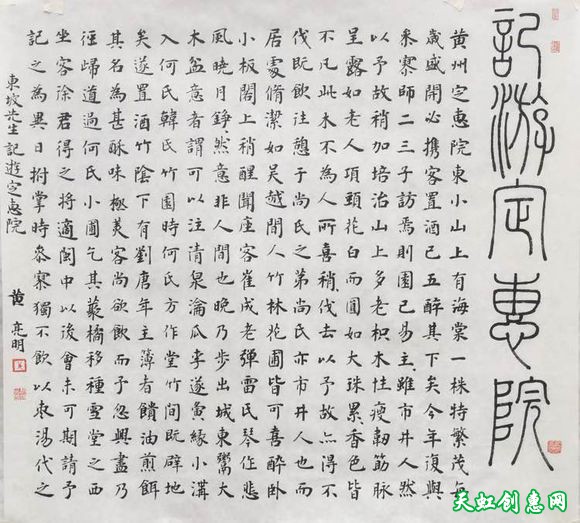 記游定惠院
黃州定惠院東小山上有海棠一株特繁茂每
歲盛開必攜客置酒已五醉其下矣今年復與
叅寥師二三子訪焉則園已易主〻雖市井人然
以予故稍加培治山上多老枳木性瘦韌筋脉
呈露如老人項頸花白而圓如大珠累〻香色皆
不凡此木不為人所喜稍〻伐去以予故亦得不
伐既飲往憩于尚氏之第尚氏亦市井人也而
居處脩潔如吳越間人竹林花圃皆可喜醉臥
小板閣上稍醒聞座客崔成老彈雷氏琴作悲
風曉月錚〻然意非人間也晚乃步出城東鬻大
木盆意者謂可以注清泉瀹瓜李遂夤緣小溝
入何氏韓氏竹園時何氏方作堂竹間既辟地
矣遂置酒竹陰下有劉唐年主簿者饋油煎餌
其名為甚酥味極美客尚欲飲而予忽興盡乃
徑歸道過何氏小圃乞其藂橘移種雪堂之西
坐客徐君得之將適閩中以後會未可期請予
記之為異日拊掌時叅寥獨不飲以棗湯代之
東坡先生記遊定惠院
黄亮明
天虹创意网